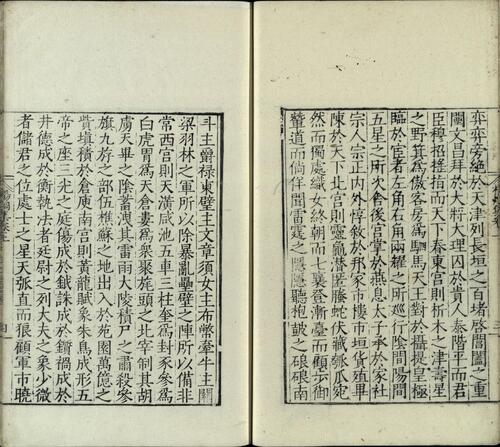 弈弈旁絶於天津列長垣之百堵啓閶闔之重
闈文昌拜於大將大理囚於貴人泰階平而君
臣穆招搖指而天下泰東宮則析木之津壽星
之野箕為傲客房為駟馬天王對於攝提皇極
臨於宦者左角右角兩耀之所巡行陰間陽間
五星之所次舍後宮掌於燕息太子承於冢社
宗人宗正内外惇敘於邦家市樓市垣貨殖畢
陳於天下北宮則靈龜潛匿螣蛇伏藏瓠瓜宛
然而獨處織女終朝而七襄登漸臺而顧步御
輦道而徜徉聞雷霆之隱隱聽枹鼓之硠硠南
斗主爵禄東壁主文章須女主布幣牽牛主關
梁羽林之軍所以除暴亂壘壁之陣所以備非
常西宮則天潢咸池五車三柱奎為封豕參為
白虎胃為天倉婁為衆聚旄頭之北宰制其胡
虜天畢之陰蓄洩其雷雨大陵積尸之肅殺參
旗九斿之部伍樵蘇之地出入於苑園萬億之
資填積於倉庾南宮則黃龍賦象朱鳥成形五
帝之座三光之庭傷成於鉞誅成於鑕禍成於
井德成於衡執法者廷尉之列大夫之象少微
者儲君之位處士之星天弧直而狼顧軍市曉